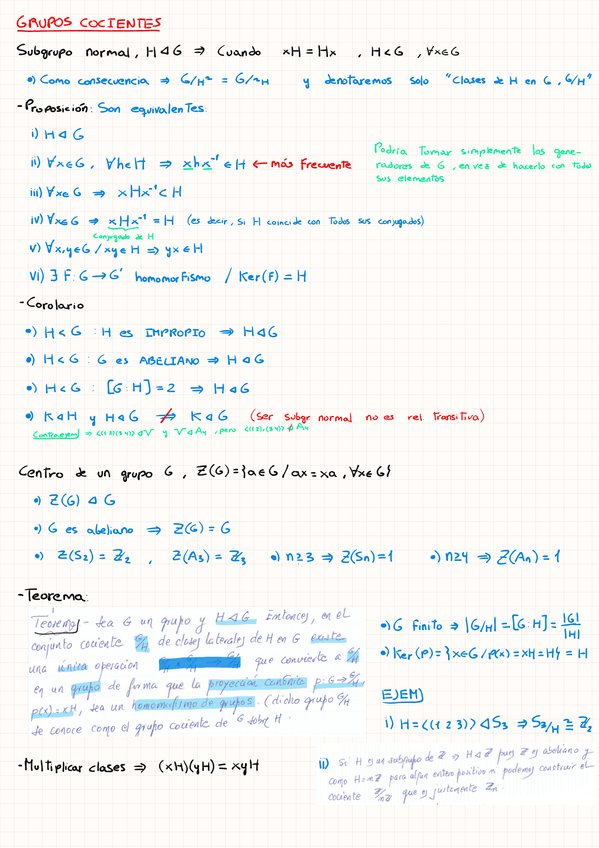 GRUPOS COCIENTES
Subgrupo normal, H⊲G ⇒ Cuando xH=Hx , H<G , ∀x∈G
•) Como consecuencia ⇒ G/H~ = G/~H y denotaremos solo "Clases de H en G, G/H"
-Proposición: Son equivalentes:
i) H⊲G
ii) ∀x∈G, ∀h∈H ⇒ xhx⁻¹∈H ← más frecuente
Podría tomar simplemente los gene-
radores de G, en vez de hacerlo con todos
sus elementos
iii) ∀x∈G ⇒ xHx⁻¹<H
iv) ∀x∈G ⇒ xHx⁻¹=H (es decir, si H coincide con todos sus conjugados)
Conjugado de H
v) ∀x,y∈G / xy∈H ⇒ yx∈H
vi) ∃ F: G→G' homomorfismo / Ker(F)=H
-Corolario
•) H<G : H es IMPROPIO ⇒ H⊲G
•) H<G : G es ABELIANO ⇒ H⊲G
•) H<G : [G:H]=2 ⇒ H⊲G
•) K⊲H y H⊲G ⇏ K⊲G (Ser subgr normal no es rel. transitiva)
Contraejem) ⇒ <(12)(34)>⊲V y V⊲A₄, pero <(12),(34)> ⋪ A₄
Centro de un grupo G, Z(G)={a∈G/ax=xa, ∀x∈G}
•) Z(G)⊲G
•) G es abeliano ⇒ Z(G)=G
•) Z(S₂)=ℤ₂ , Z(A₃)=ℤ₃ •) n≥3 ⇒ Z(Sn)=1 •) n≥4 ⇒ Z(An)=1
-Teorema:
Teorema - Sea G un grupo y H⊲G. Entonces, en el
conjunto cociente G/H de clases laterales de H en G existe
una única operación que convierte a G/H
en un grupo de forma que la proyección canónica p: G→G/H,
p(x)=xH, sea un homomorfismo de grupos. (dicho grupo G/H
se conoce como el grupo cociente de G sobre H.
•) G finito ⇒ |G/H|=[G:H]=|G|/|H|
•) Ker(p)={x∈G/p(x)=xH=H}=H
EJEM)
i) H=<(1 2 3)>⊲S₃ ⇒ S₃/H≅ℤ₂
-Multiplicar clases ⇒ (xH)(yH)=xyH
ii) Si H es un subgrupo de ℤ ⇒ H⊲ℤ pues ℤ es abeliano y
como H=nℤ para algún entero positivo n podemos construir el
cociente ℤ/nℤ que es justamente ℤn.